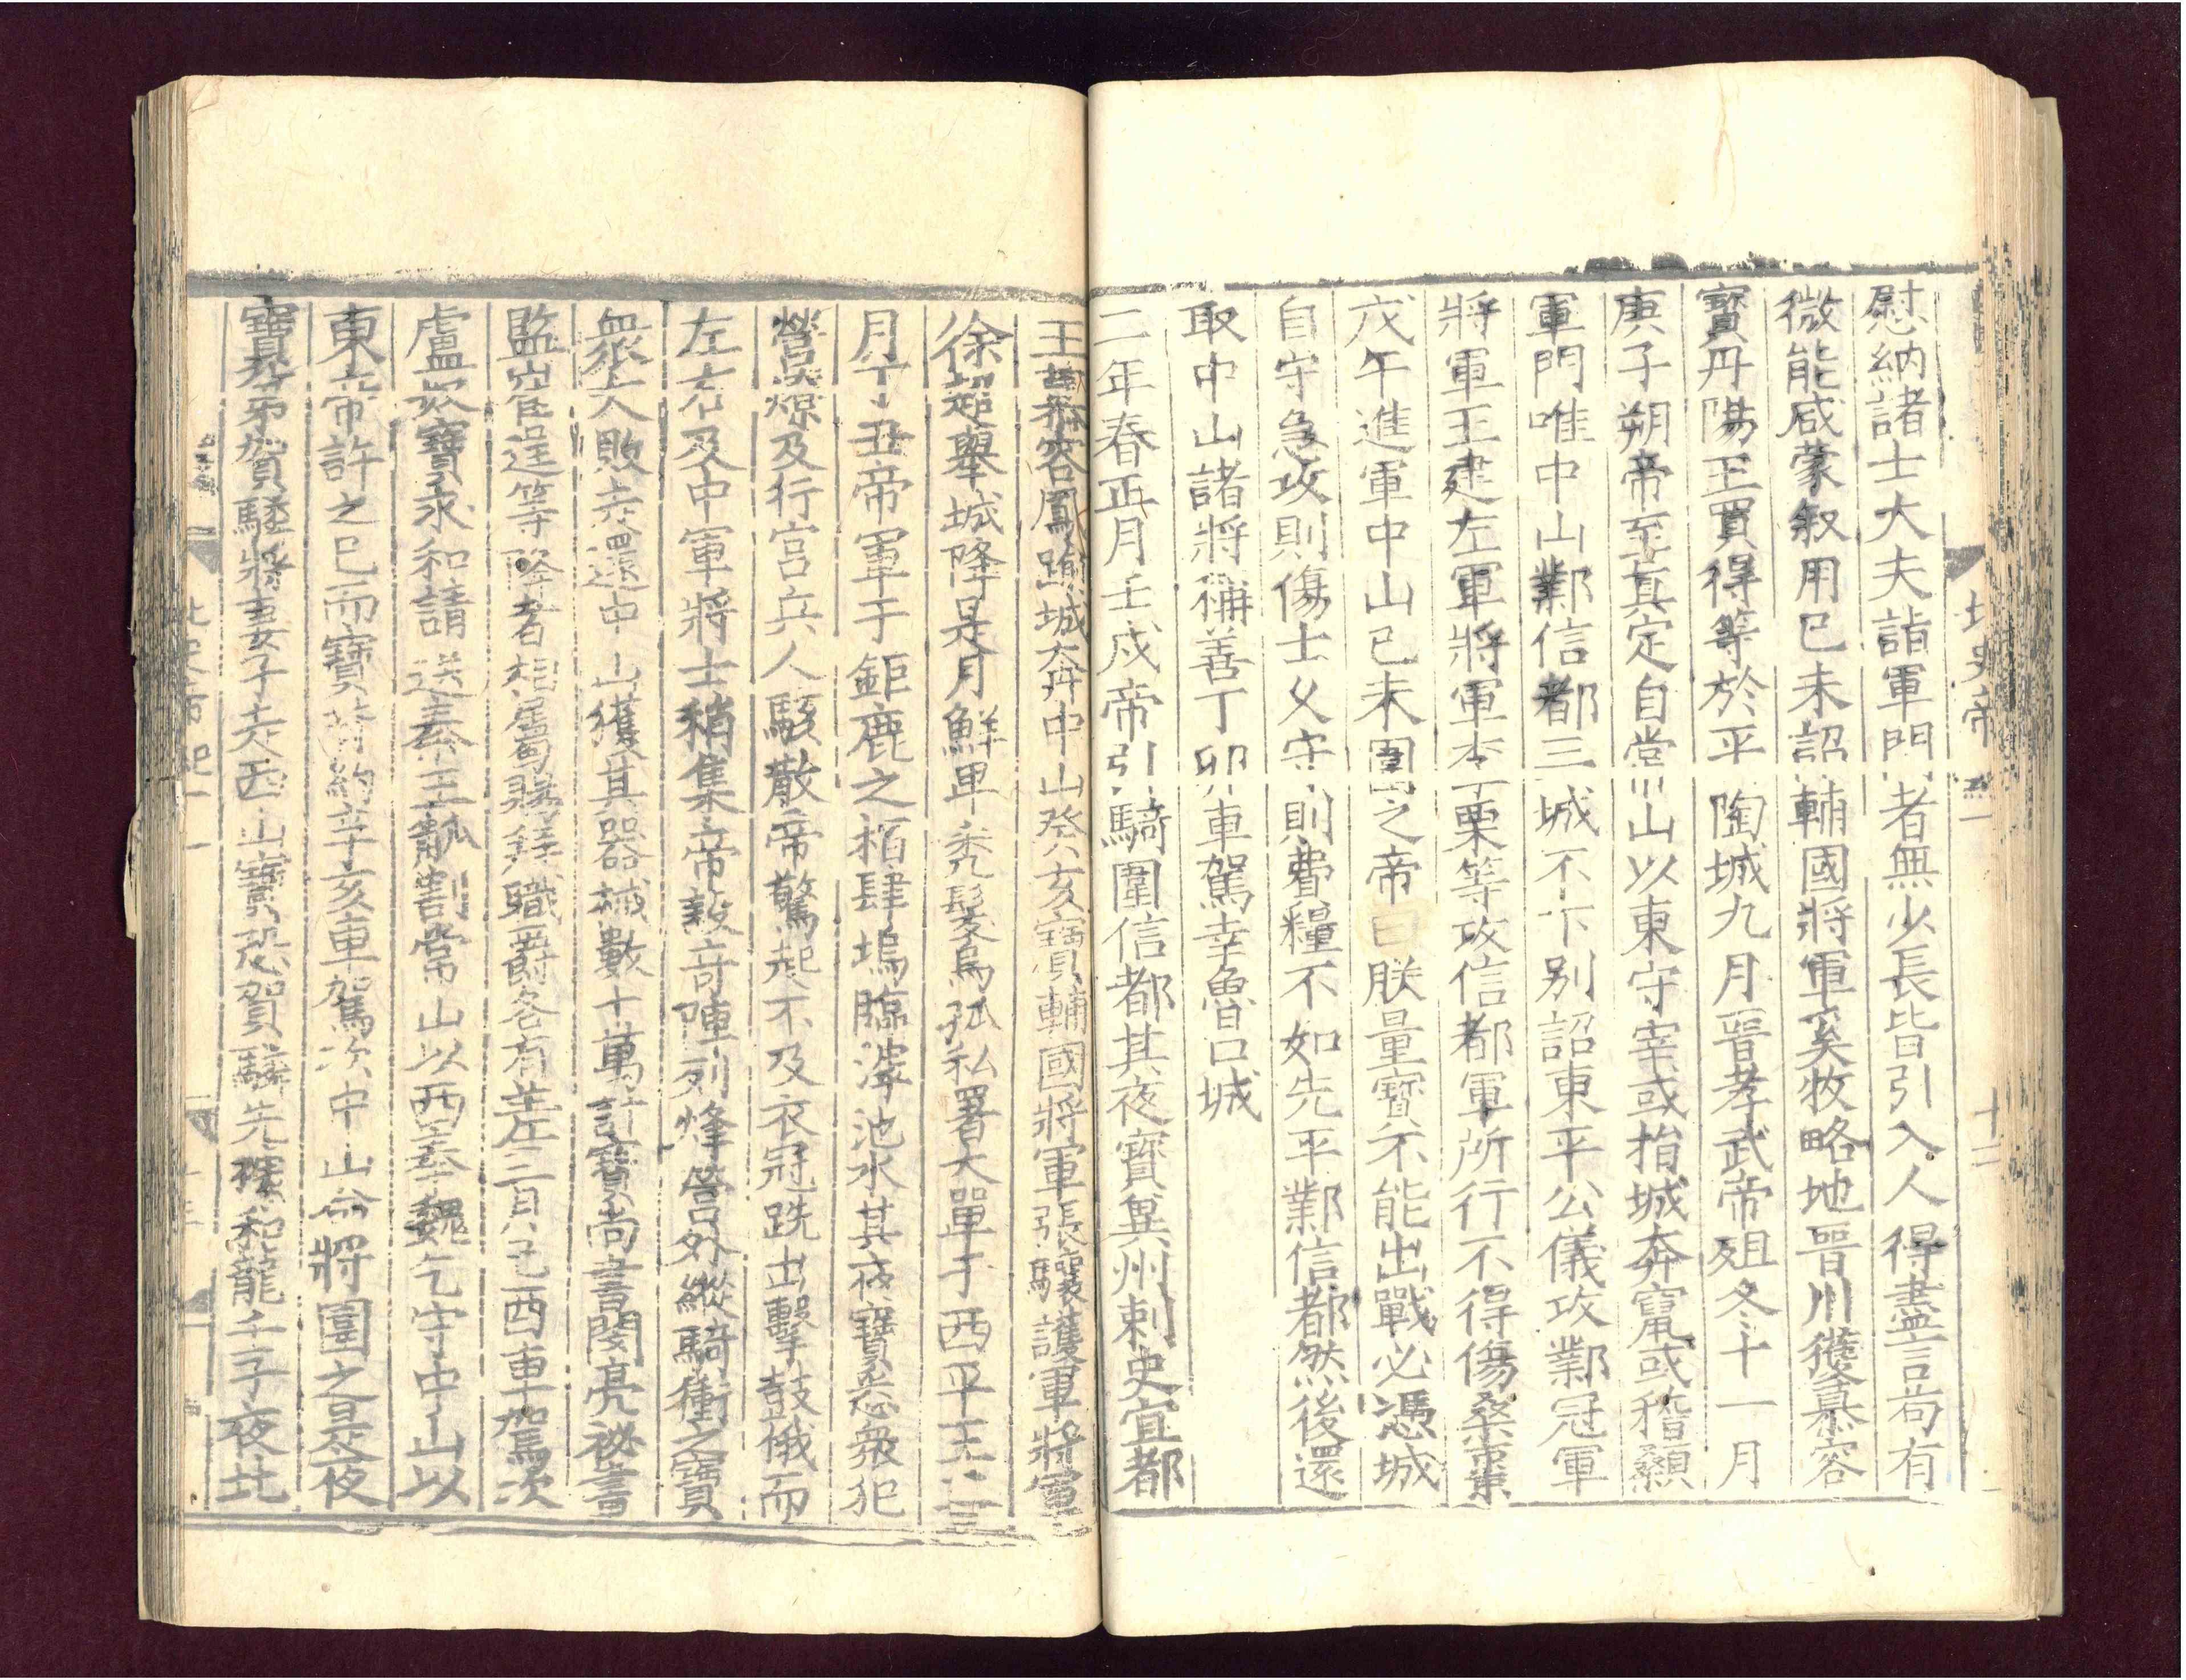 慰納諸士大夫詣軍門者無少長皆引入人得盡言苟有
微能咸蒙叙用己未詔輔國將軍奚牧略地晉川獲慕容
寳丹陽王買得等於平陶城九月晉孝武帝殂冬十一月
庚子朔帝至真定自常山以東守宰或捐城奔竄或稽顙
軍門唯中山鄴信都三城不下別詔東平公儀攻鄴冠軍
將軍王建左軍將軍李栗等攻信都軍所行不得傷桑棗
戊午進軍中山己未圍之帝曰朕量寳不能出戰必憑城
自守急攻則傷士久守則費糧不如先平鄴信都然後還
取中山諸將稱善丁卯車駕幸魯口城
二年春正月壬戌帝引騎圍信都其夜寳兾州刺史宜都
王慕容鳳踰城奔中山癸亥寳輔國將軍張驤護軍將軍
徐超舉城降是月鮮卑禿髮烏孤私署大單于西平王二
月丁丑帝軍于鉅鹿之栢肆塢臨滹池水其夜寳悉衆犯
營燎及行宫兵人駭散帝驚起不及衣冠跣出擊鼓俄而
左右及中軍將士稍集帝設竒陣列烽營外縱騎衝之寳
衆大敗走還中山獲其器械數十萬計寳尚書閔亮秘書
監崔逞等降者相屬賜拜職爵各有差三月己酉車駕次
盧奴寳求和請送秦王觚割常山以西奉魏乞守中山以
東帝許之已而寳背約辛亥車駕次中山命將圍之是夜
寳弟賀驎將妻子走西山寳恐賀驎先據和龍壬子夜北
北史帝紀一
十二
北史帝紀一
十三